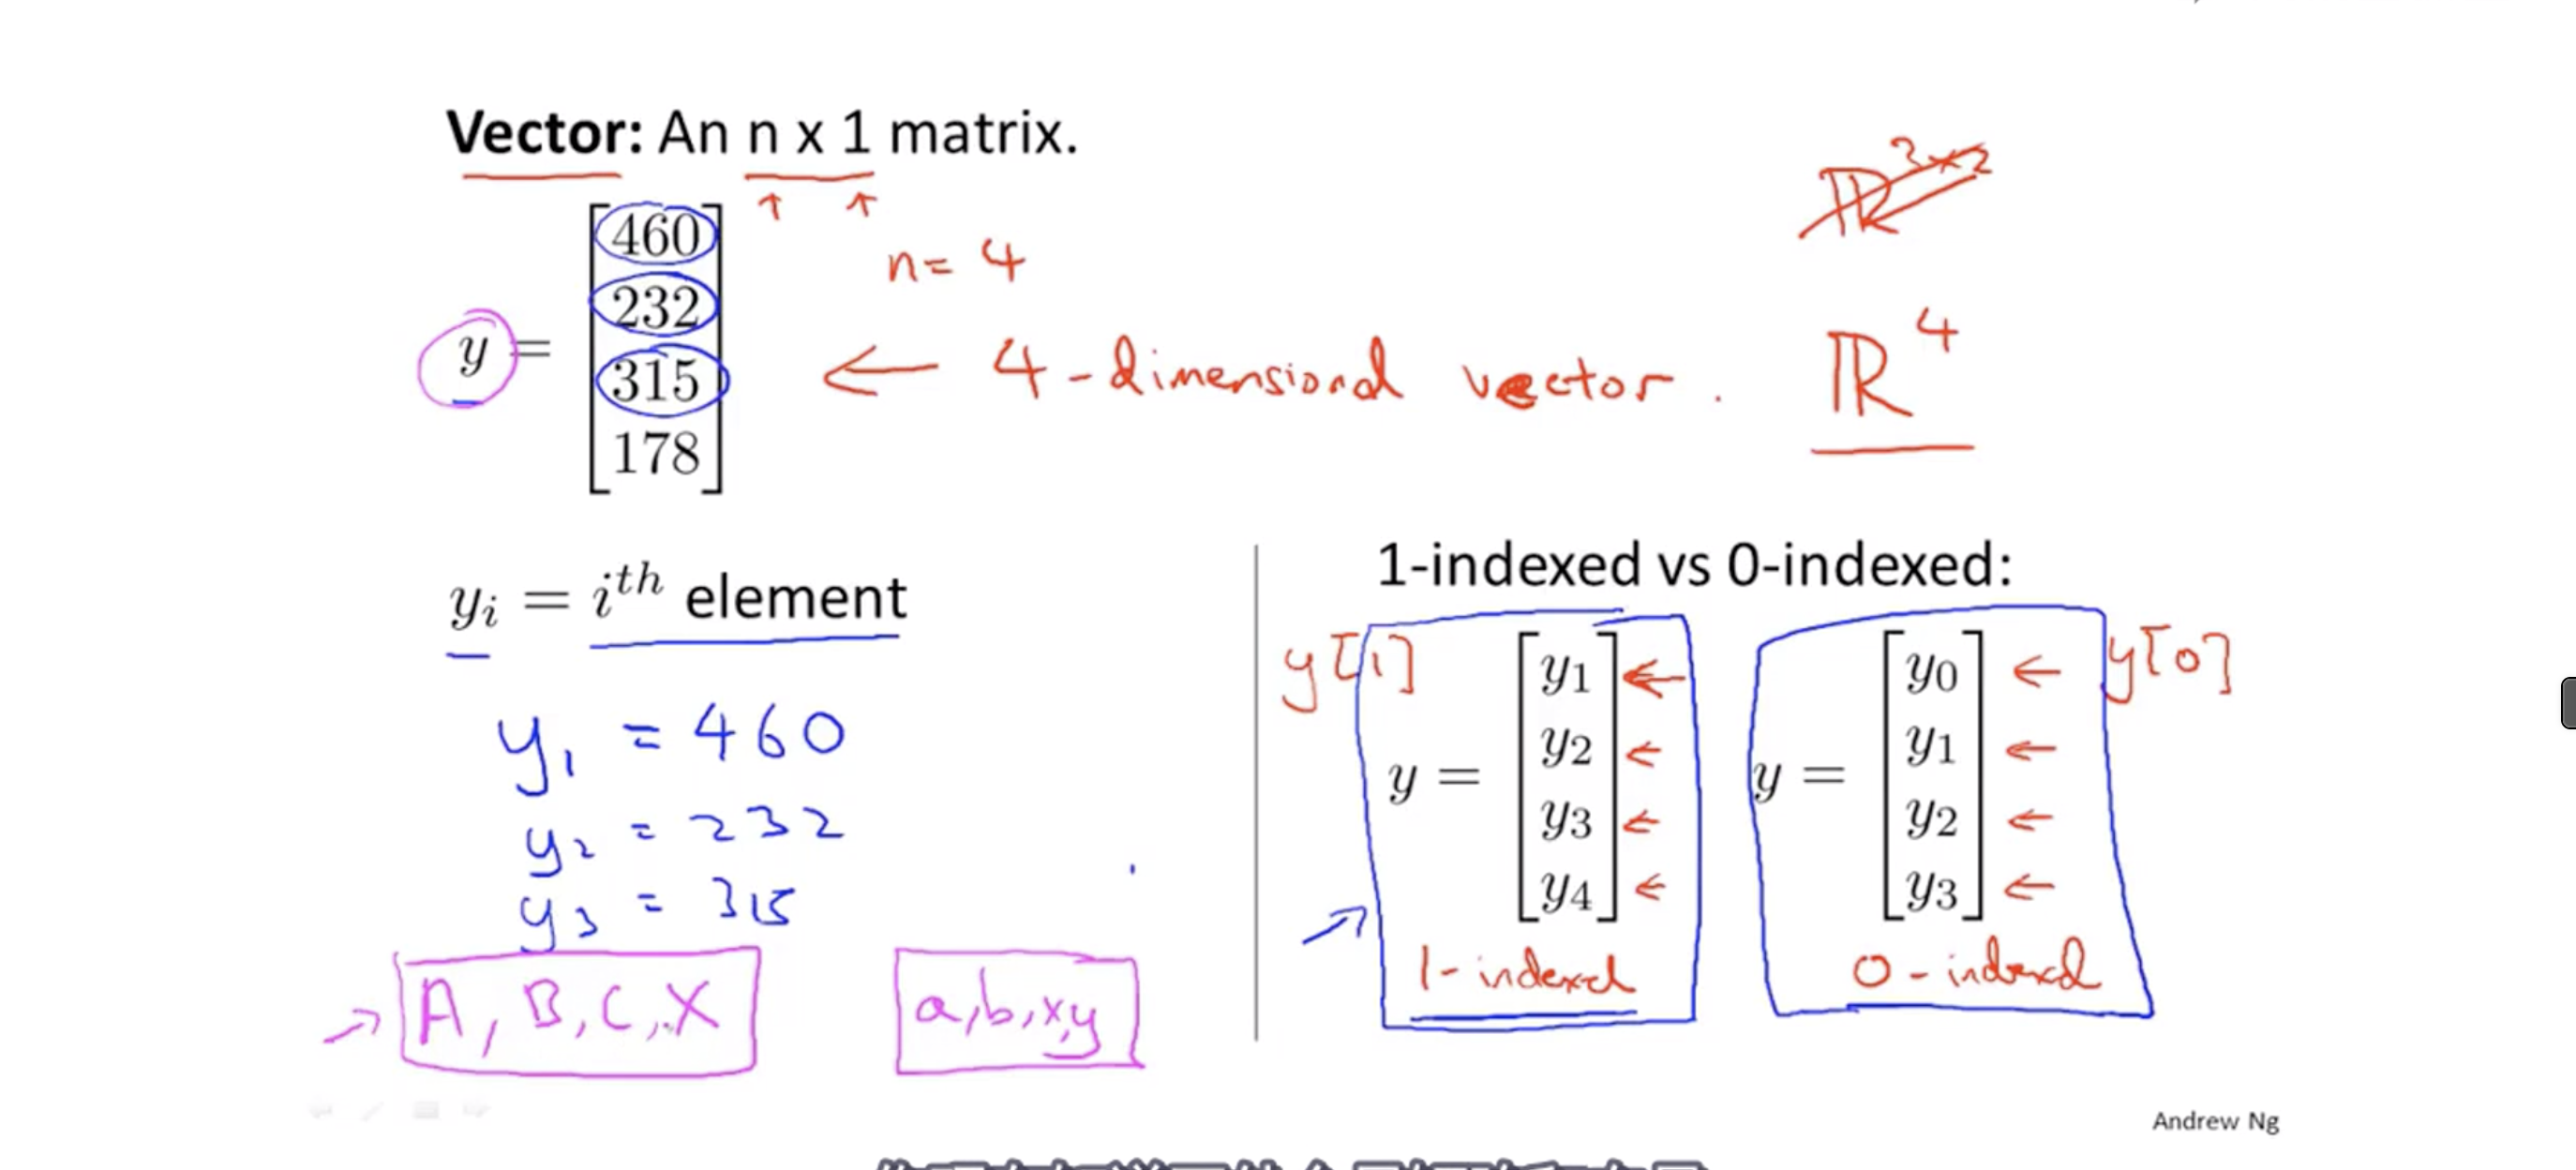 Vector: An n x 1 matrix.
ℝ^3×2
n = 4
y = [460
232
315
178]
← 4-dimensional vector. ℝ^4
y_i = i^th element
y_1 = 460
y_2 = 232
y_3 = 315
A, B, C, X
a, b, x, y
1-indexed vs 0-indexed:
y[1]
y = [y_1
y_2
y_3
y_4]
1-indexed
y[0]
y = [y_0
y_1
y_2
y_3]
0-indexed
Andrew Ng